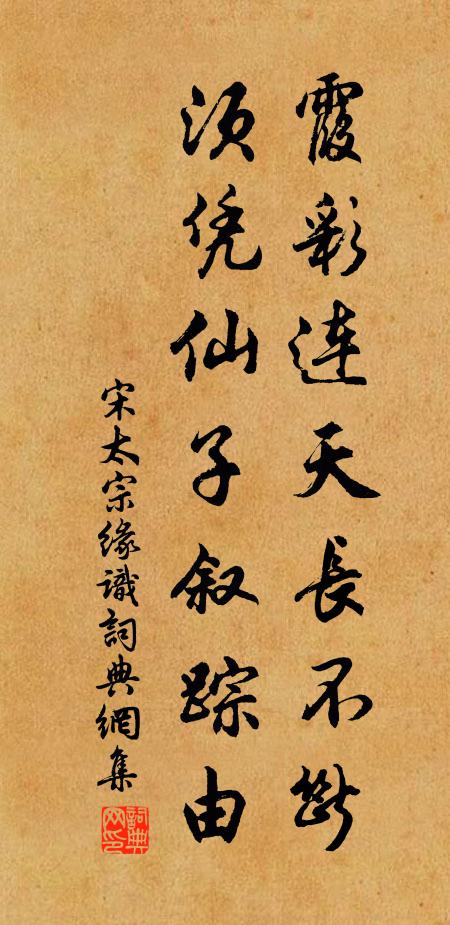 霞彩连天長不断
须凭仙子叙踪由
宋太宗缘識詞典網集
詞典网印